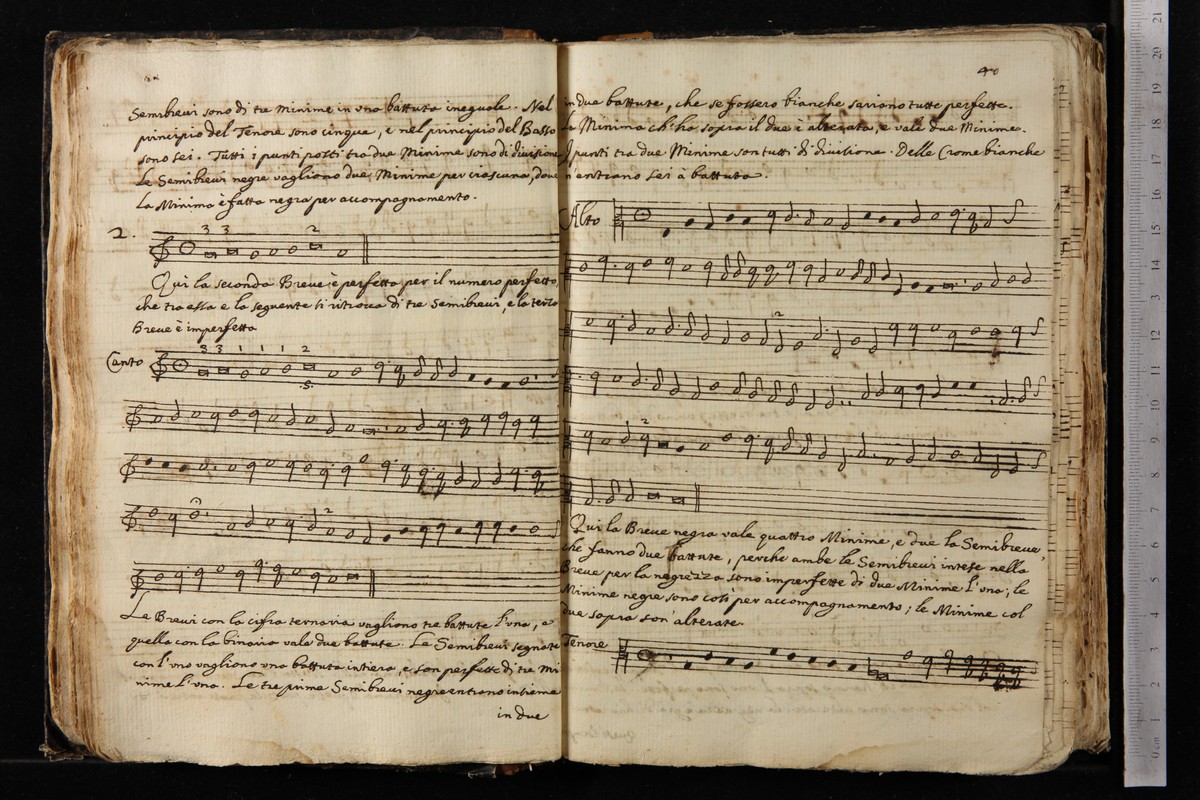 Semibrevi sono di tre Minime in una battuta ineguale. Nel
principio del Tenore sono cinque, e nel principio del Basso
sono sei. Tutti i punti posti tra due Minime sono di divisione
Le Semibrevi negre vagliono due Minime per ciascuna, dove
la Minima è fatta negra per accompagnamento.
2.
3 3 2
Qui la seconda Breve è perfetta per il numero perfetto,
che tra essa e la seguente si ritrova di tre Semibrevi, e la terza
Breve è imperfetta
Canto
3 3 1 1 1 2
2
Le Brevi con la cifra ternaria vagliono tre battute l'una, e
quella con la binaria vale due battute. Le Semibrevi segnate
con l'uno vagliono una battuta intiera, e son perfette di tre Mi
nime l'una. Le tre prime Semibrevi negre entrono insieme
in due
40
in due battute, che se fossero bianche sariano tutte perfette.
La Minima ch'ha sopra il due è alterata, e vale due Minime.
I punti tra due Minime son tutti di divisione. Delle Crome bianche
n'entrano sei à battuta.
Alto
2
2
Qui la Breve negra vale quattro Minime, e due la Semibreve,
che fanno due battute, perche ambe le Semibrevi intese nella
Breve per la negrezza sono imperfette di due Minime l'una; le
Minime negre sono così per accompagnamento; le Minime col
due sopra son' alterate.
Tenore